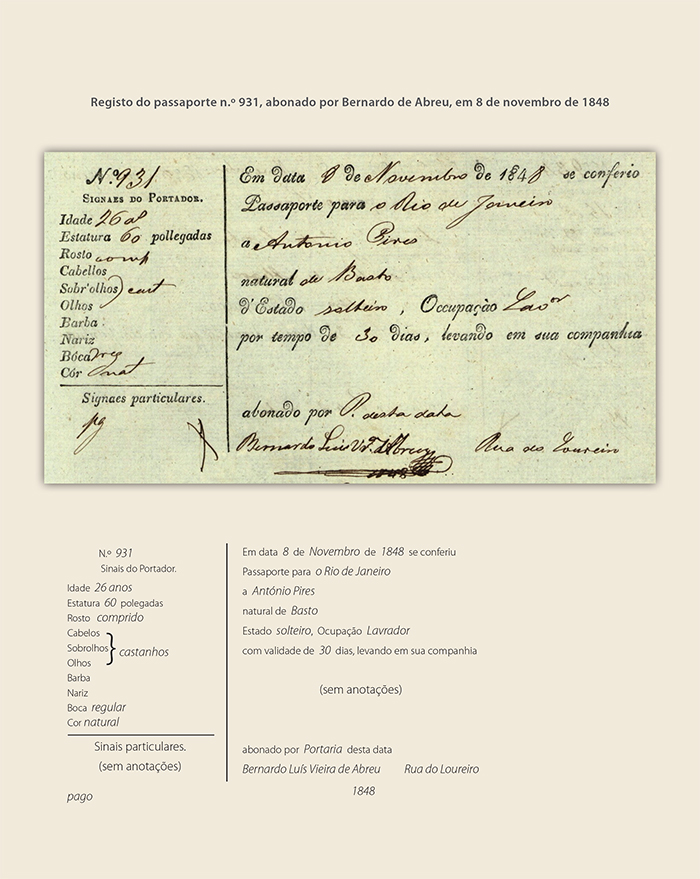 Registo do passaporte n.º 931, abonado por Bernardo de Abreu, em 8 de novembro de 1848
N.º 931
SIGNAES DO PORTADOR.
Idade 26 a
Estatura 60 pollegadas
Rosto comp
Cabellos
Sobr'olhos } cast
Olhos
Barba
Nariz
Bôca reg
Côr nat
Signaes particulares.
pg
Em data 8 de Novembro de 1848 se conferio
Passaporte para o Rio de Janeiro
a Antonio Pires
natural de Basto
d'Estado solteiro, Occupação Lavor
por tempo de 30 dias, levando em sua companhia
abonado por P. desta data
Bernardo Luis Vª d'Abreu Rua do Loureiro
1848
N.º 931
Sinais do Portador.
Idade 26 anos
Estatura 60 polegadas
Rosto comprido
Cabelos
Sobrolhos } castanhos
Olhos
Barba
Nariz
Boca regular
Cor natural
Sinais particulares.
(sem anotações)
pago
Em data 8 de Novembro de 1848 se conferiu
Passaporte para o Rio de Janeiro
a António Pires
natural de Basto
Estado solteiro, Ocupação Lavrador
com validade de 30 dias, levando em sua companhia
(sem anotações)
abonado por Portaria desta data
Bernardo Luís Vieira de Abreu Rua do Loureiro
1848